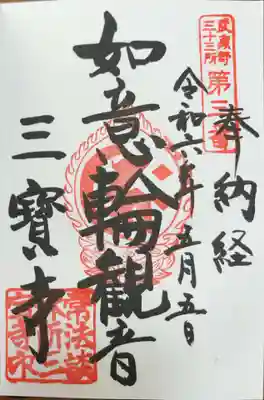 武蔵野
三十三所
第三番
奉納経
令和六年五月五日
如意輪観音
三寳寺
常法談